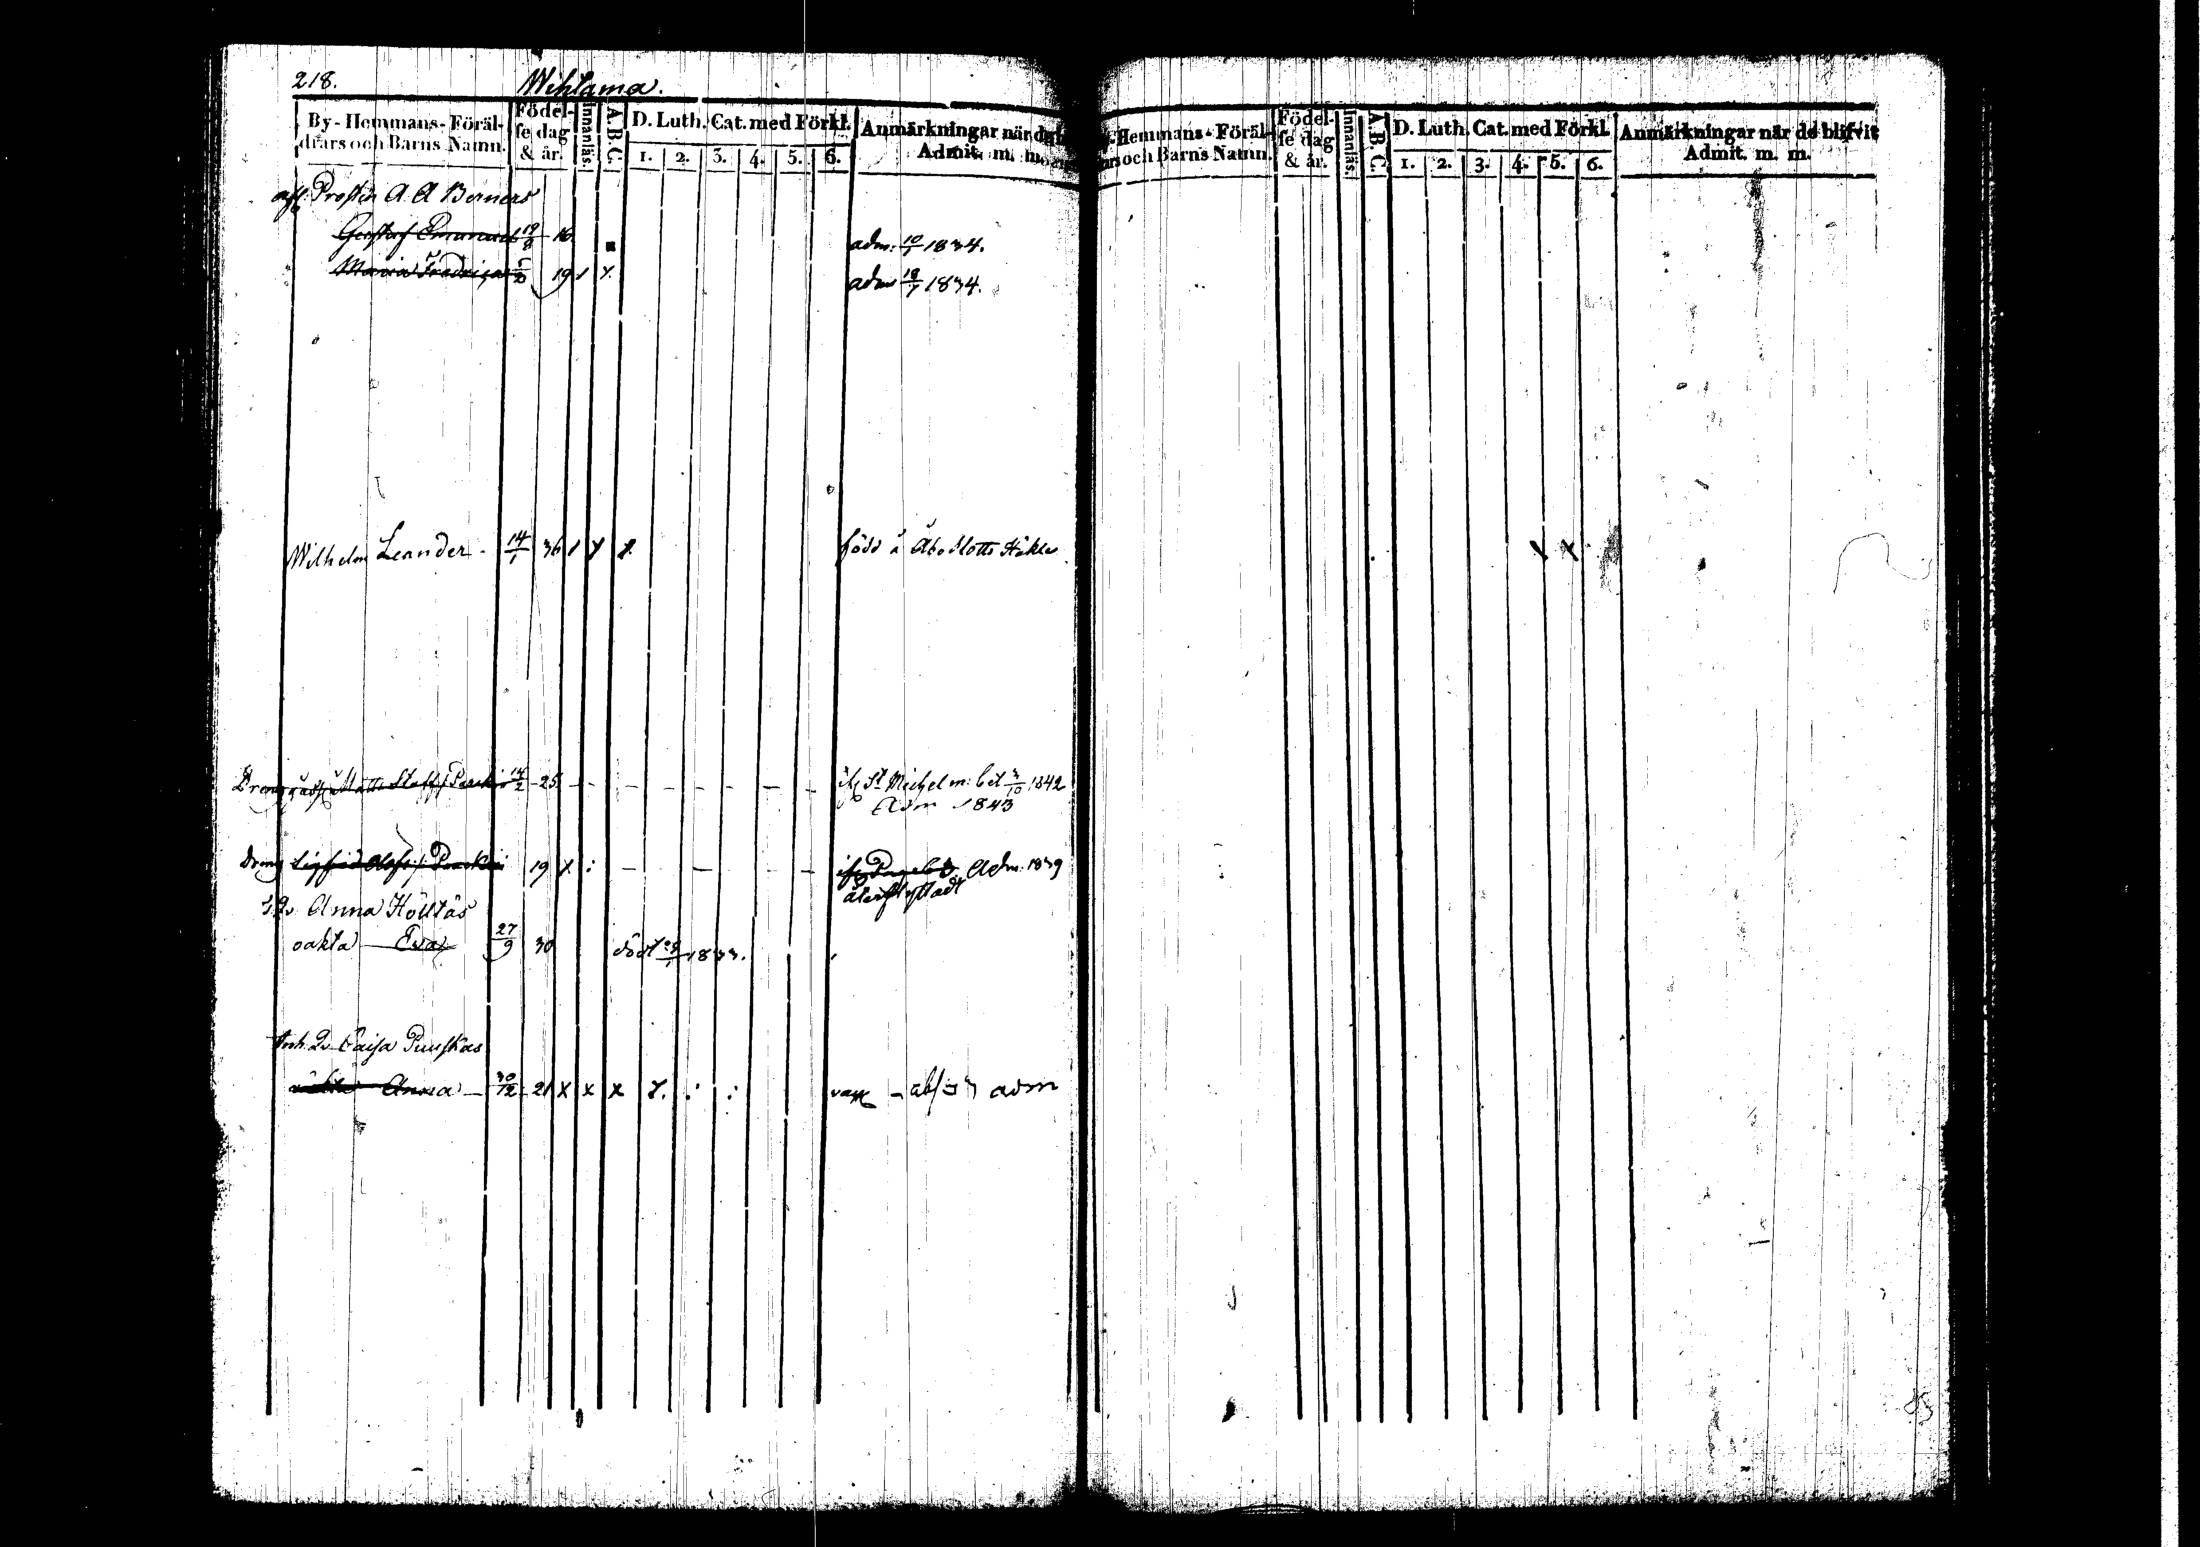 218.
Wihtama.
By-Hemmans-Föräl-
drars och Barns Namn.
Födel-
se dag
& år.
Innanläs.
A. B. C.
D. Luth. Cat. med Förkl.
1. 2. 3. 4. 5. 6.
Anmärkningar när de
Admit. m. m.
afl. Prosten A A Berners
Gustaf Emanuel 19/8 16. adm. 10/7 1834.
Maria Fredrica 19 adm 10/7 1834.
Wilhelm Leander - 14/1 36 x x x född å Åbo Slotts Häkte
Dreng Matts Staffs 14/2 - 25 St Michel m: bet 3/10 1842
Adm 1843
Dreng Sigfrid Olofs 19 x : - - - Adm. 1839
återflyttadt
Anna Höltäs
oäkta Eva 27/9 30 död 1833.
Inh. Q. Caisa Puuskas
Anna - 30/12 21 x x x x. : : - adm
Hemmans-Föräl-
och Barns Namn.
Födel-
se dag
& år.
Innanläs.
A. B. C.
D. Luth. Cat. med Förkl.
1. 2. 3. 4. 5. 6.
Anmärkningar när de blifvit
Admit. m. m.